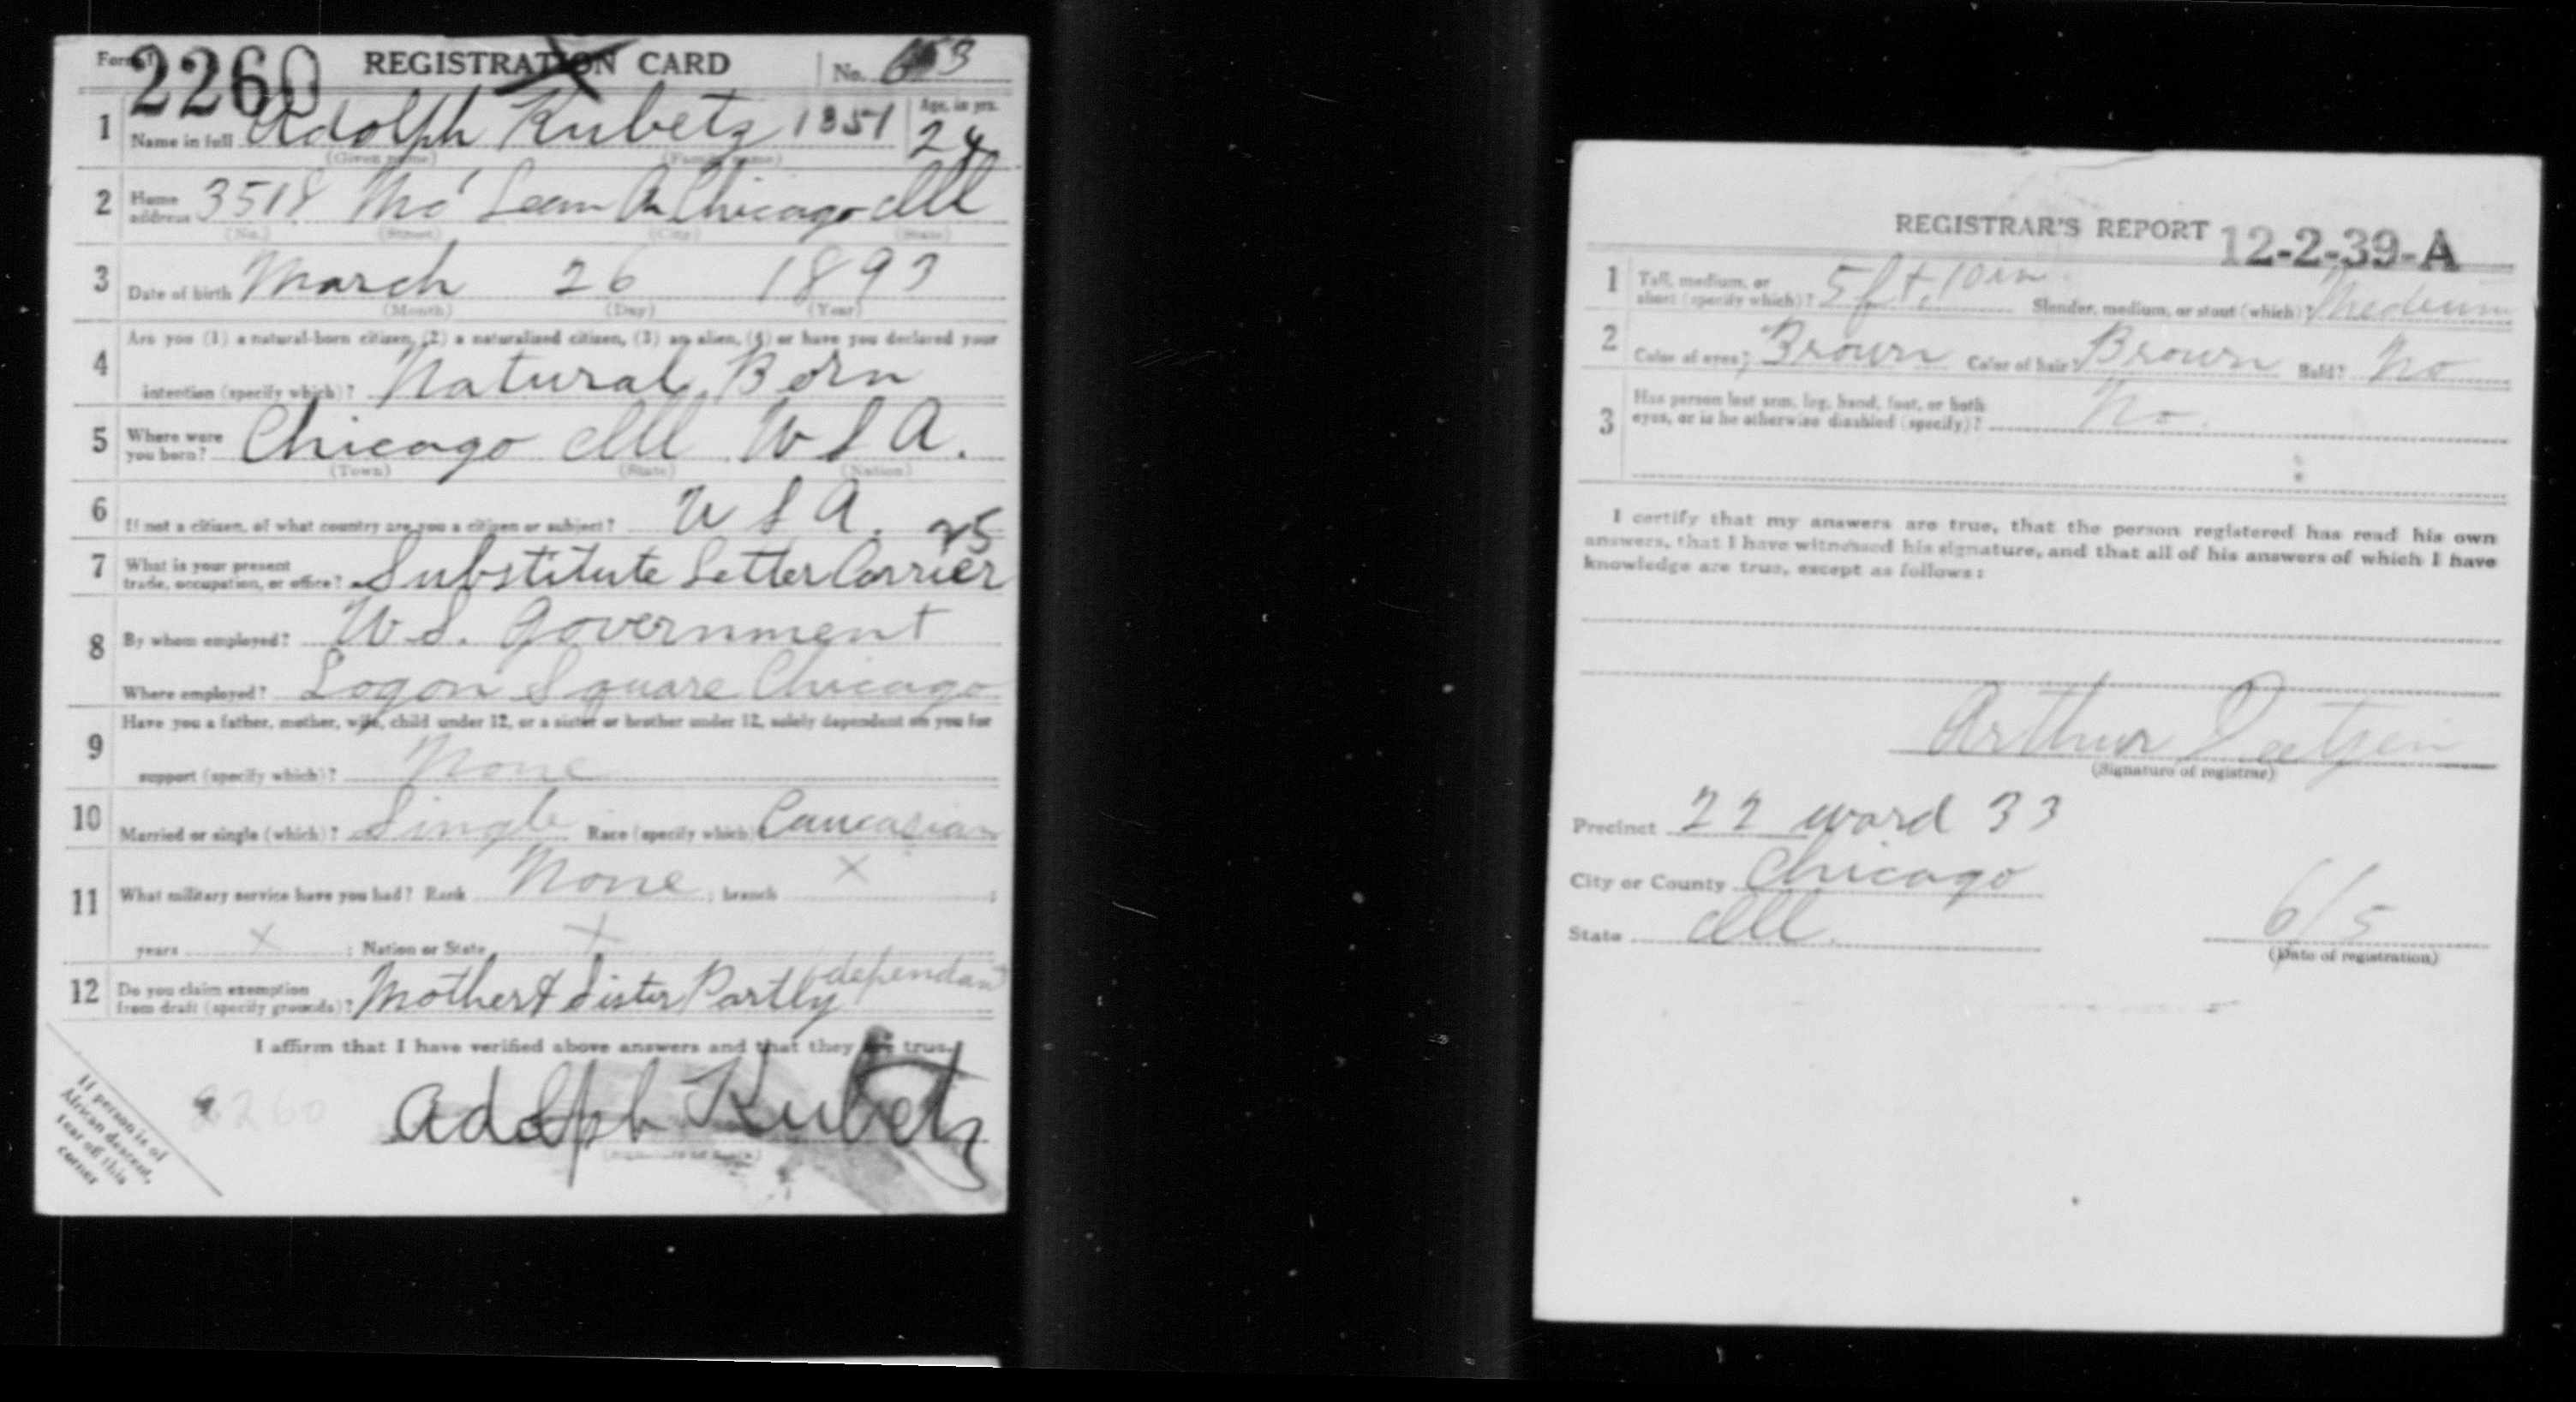 Form 1 2260 REGISTRATION CARD No.
1 Name in full Adolph Kubetz 1851 Age, in yrs. 24
(Given name) (Family name)
2 Home address 3518 Mc Lean Av Chicago Ill
(No.) (Street) (City) (State)
3 Date of birth March 26 1893
(Month) (Day) (Year)
4 Are you (1) a natural-born citizen, (2) a naturalized citizen, (3) an alien, (4) or have you declared your
intention (specify which)? Natural Born
5 Where were you born? Chicago Ill U S A.
(Town) (State) (Nation)
6 If not a citizen, of what country are you a citizen or subject? U S A. 25
7 What is your present trade, occupation, or office? Substitute Letter Carrier
8 By whom employed? U.S. Government
Where employed? Logan Square Chicago
9 Have you a father, mother, wife, child under 12, or a sister or brother under 12, solely dependent on you for
support (specify which)? None
10 Married or single (which)? Single Race (specify which) Caucasian
11 What military service have you had? Rank None ; branch X ;
years X ; Nation or State X
12 Do you claim exemption from draft (specify grounds)? Mother & Sister Partly dependant
I affirm that I have verified above answers and that they are true.
2260
Adolph Kubetz
If person is of
African descent,
tear off this
corner
REGISTRAR'S REPORT 12-2-39-A
1 Tall, medium, or short (specify which)? 5 ft. 10 in. Slender, medium, or stout (which)? Medium
2 Color of eyes? Brown Color of hair? Brown Bald? No
3 Has person lost arm, leg, hand, foot, or both
eyes, or is he otherwise disabled (specify)? No.
I certify that my answers are true, that the person registered has read his own
answers, that I have witnessed his signature, and that all of his answers of which I have
knowledge are true, except as follows:
Arthur
(Signature of registrar)
Precinct 22 ward 33
City or County Chicago
State Ill. 6/5
(Date of registration)